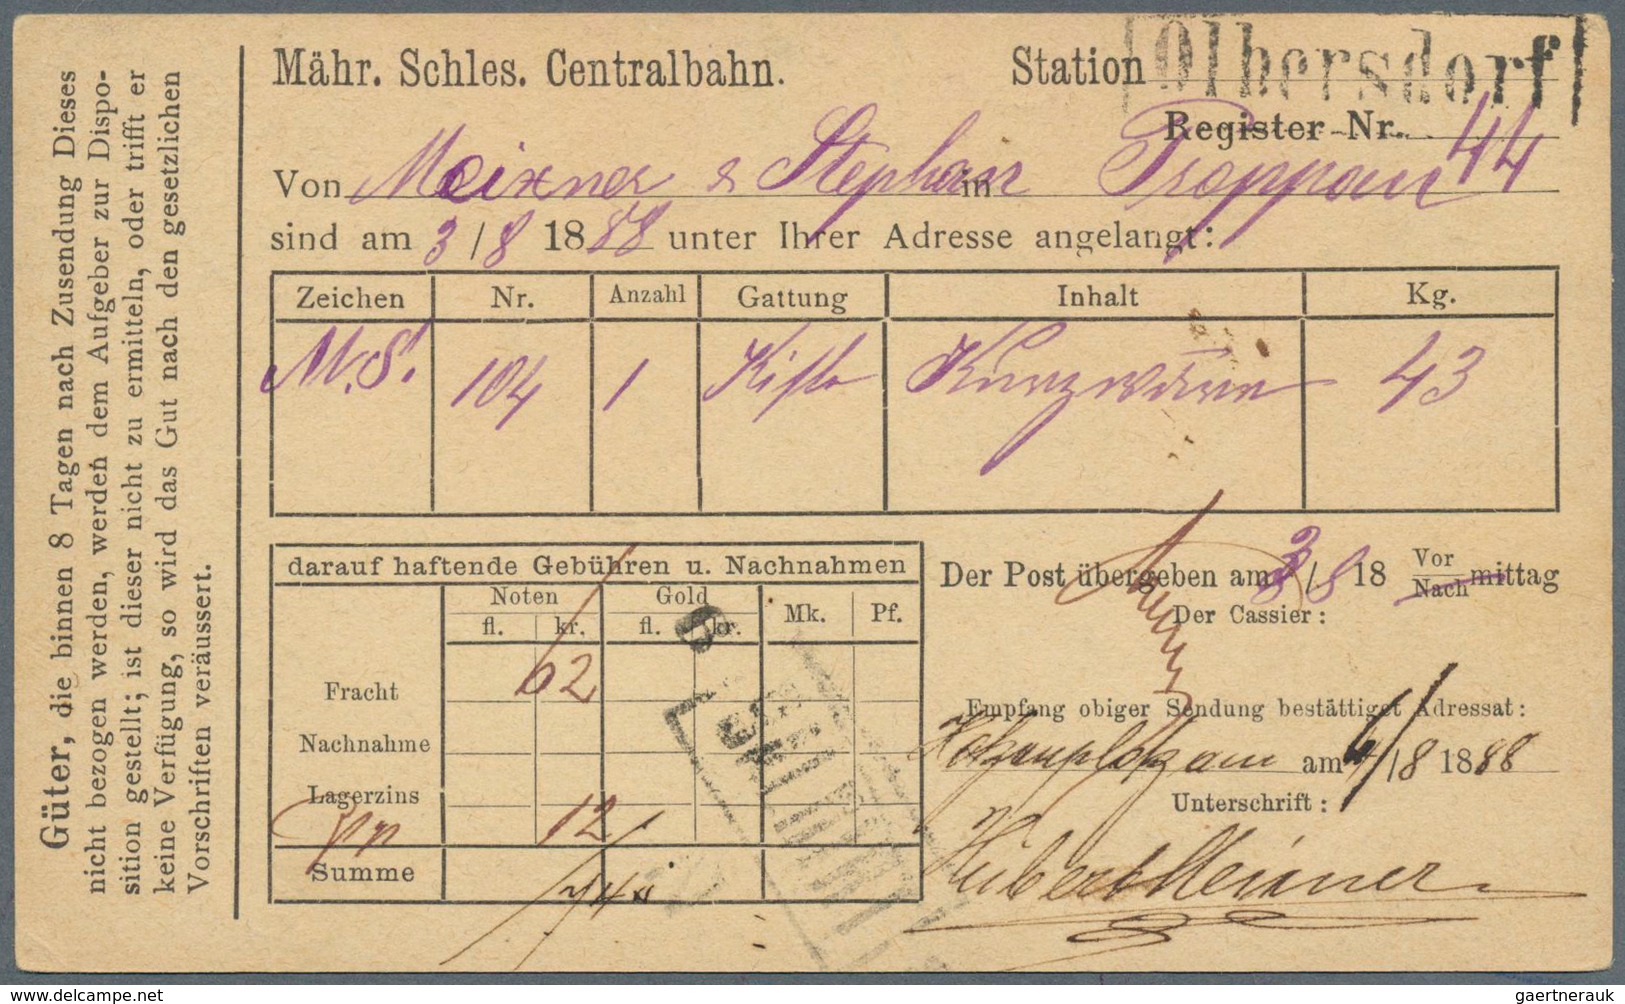 Mähr. Schles. Centralbahn. Station Olbersdorf
Register-Nr. 44
Von Meixner & Stephan in Troppau
sind am 3/8 1888 unter Ihrer Adresse angelangt:
Zeichen Nr. Anzahl Gattung Inhalt Kg.
M.S. 104 1 Kiste Kurzwaren 43
darauf haftende Gebühren u. Nachnahmen
Noten Gold Mk. Pf.
fl. kr. fl. kr.
Fracht 62
Nachnahme
Lagerzins
12
Summe 74
Der Post übergeben am 3/8 18 Vor
Nach mittag
Der Cassier:
Empfang obiger Sendung bestättiget Adressat:
Hotzenplotz am am 4/8 1888
Unterschrift:
Hubert Meixner
Güter, die binnen 8 Tagen nach Zusendung Dieses
nicht bezogen werden, werden dem Aufgeber zur Dispo-
sition gestellt; ist dieser nicht zu ermitteln, oder trifft er
keine Verfügung, so wird das Gut nach den gesetzlichen
Vorschriften veräussert.
gaertnerauk